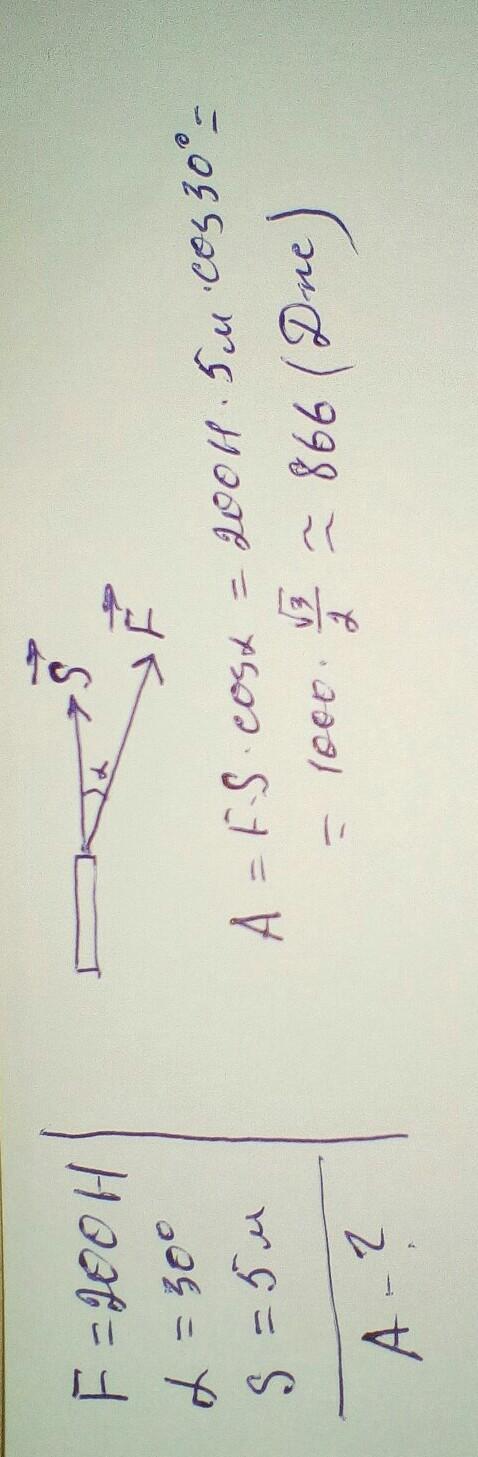 F = 200 Н
α = 30°
S = 5 м
A - ?
S
F
α
A = F·S·cosα = 200 Н · 5 м · cos 30° =
= 1000 · √3/2 ≃ 866 (Дж)